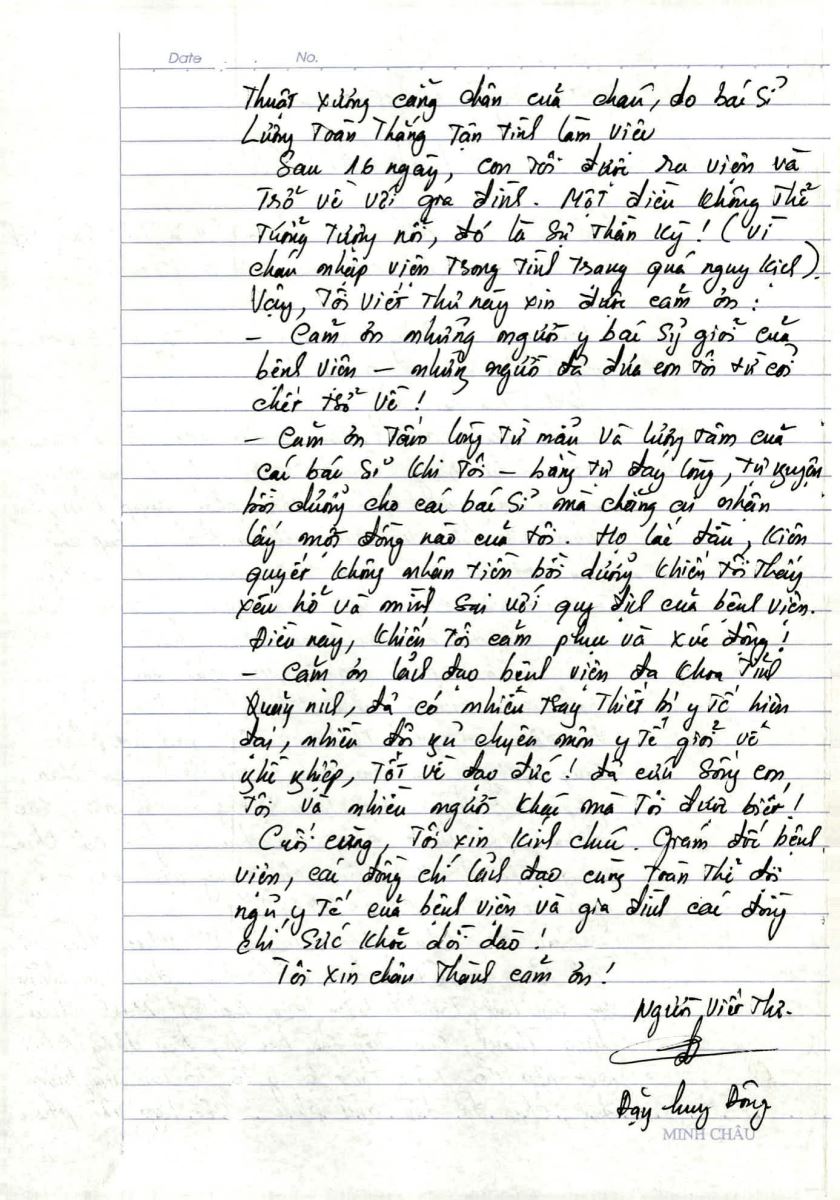 Date No.
Thuật xương cẳng chân của cháu, do bác sĩ
Lương Toàn Thắng tận tình làm việc
Sau 16 ngày, con tôi được ra viện và
trở về với gia đình. Một điều không thể
tưởng tượng nổi, đó là sự thần kỳ! (Vì
cháu nhập viện trong tình trạng quá nguy kịch).
Vậy, tôi viết thư này xin được cảm ơn:
- Cảm ơn những người y bác sỹ giỏi của
bệnh viện - những người đã đưa con tôi từ cõi
chết trở về!
- Cảm ơn tấm lòng từ mẫu và lương tâm của
các bác sĩ khi tôi - bằng tự đáy lòng, tự nguyện
bồi dưỡng cho các bác sĩ mà chẳng ai nhận
lấy một đồng nào của tôi. Họ lắc đầu, kiên
quyết không nhận tiền bồi dưỡng khiến tôi thấy
xấu hổ và mình sai với quy định của bệnh viện.
Điều này, khiến tôi cảm phục và xúc động!
- Cảm ơn lãnh đạo bệnh viện đa khoa tỉnh
Quảng ninh, đã có nhiều trang thiết bị y tế hiện
đại, nhiều đội ngũ chuyên môn y tế giỏi về
nghề nghiệp, tốt về đạo đức! đã cứu sống con
tôi và nhiều người khác mà tôi được biết!
Cuối cùng, tôi xin kính chúc. Giám đốc bệnh
viện, các đồng chí lãnh đạo cùng toàn thể đội
ngũ y tế của bệnh viện và gia đình các đồng
chí sức khỏe dồi dào!
Tôi xin chân thành cảm ơn!
Người viết thư.
Huy Đông
MINH CHÂU